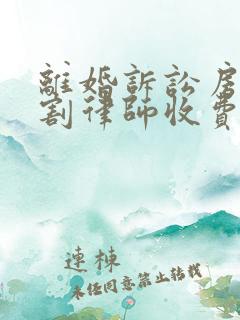 離婚訴訟房
割律師收費
連棟
未经同意禁止转载